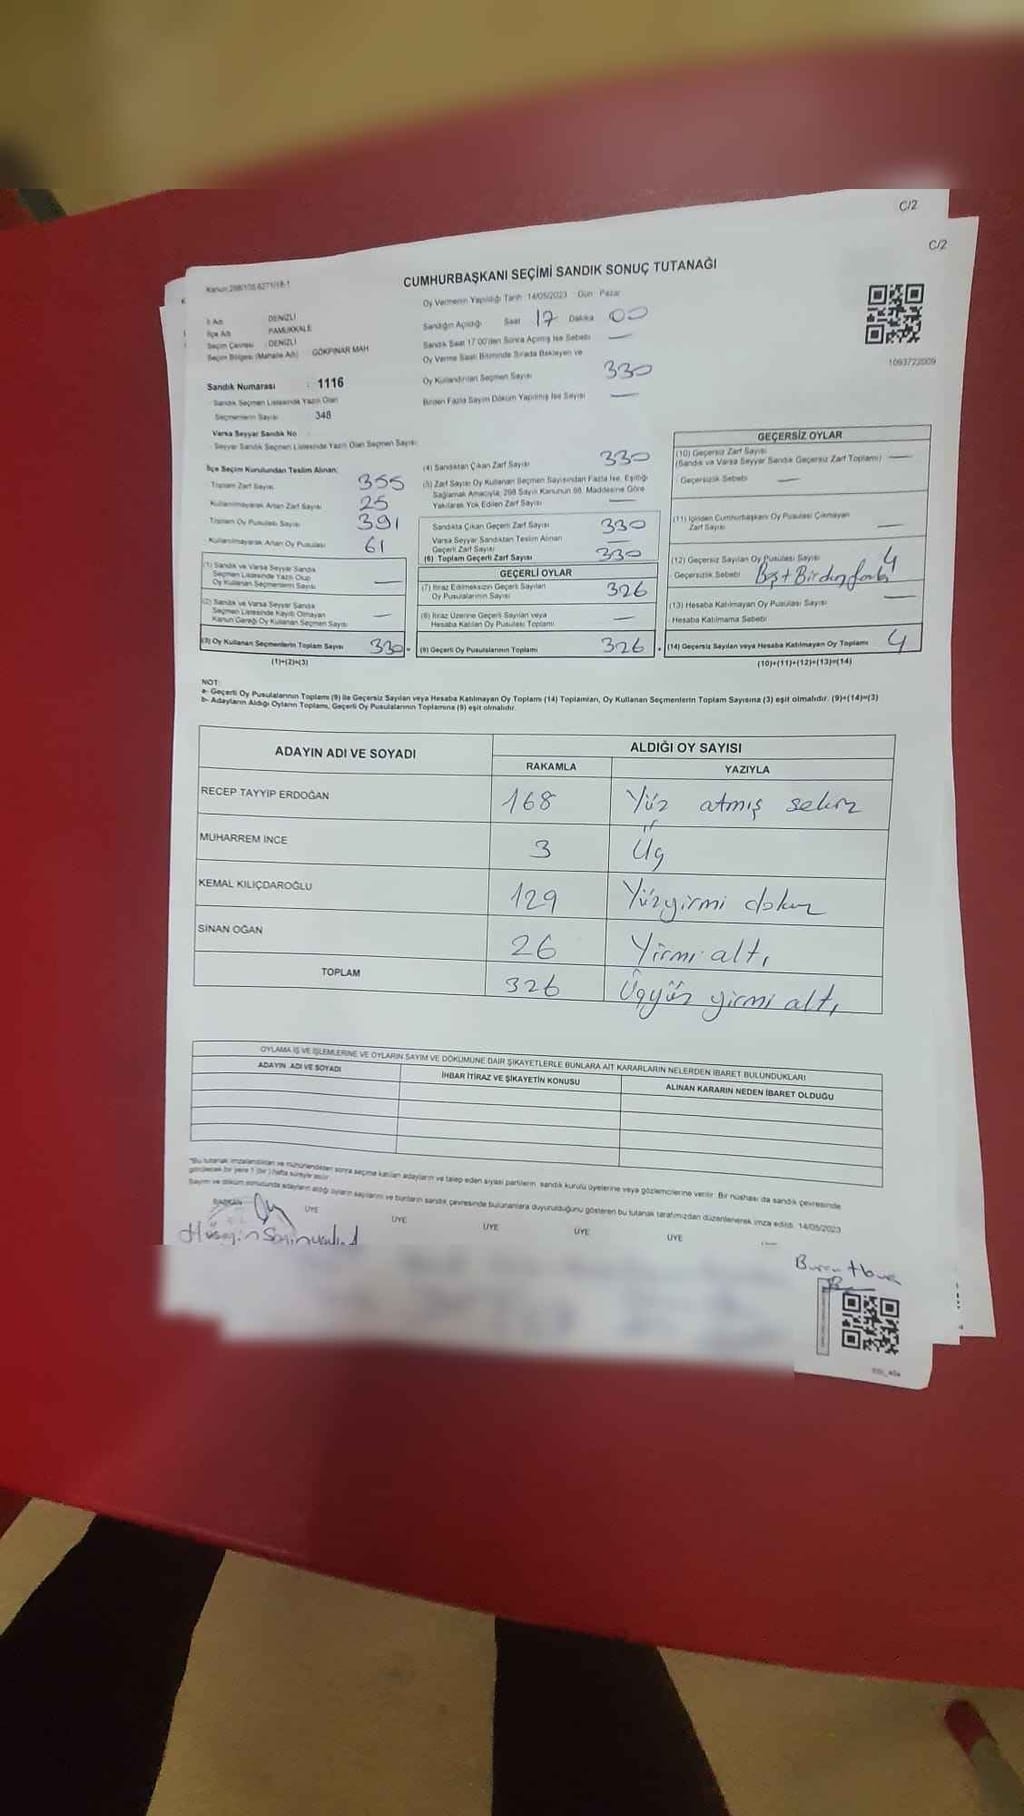 C/2
C/2
CUMHURBAŞKANI SEÇİMİ SANDIK SONUÇ TUTANAĞI
Oy Vermenin Yapıldığı Tarih 14/05/2023 Gün Pazar
İl Adı DENİZLİ
İlçe Adı PAMUKKALE
Seçim Çevresi DENİZLİ
Seçim Bölgesi (Mahalle Adı) GÖKPINAR MAH
Sandığın Açıldığı Saat 17 Dakika 00
Sandık Saat 17:00'den Sonra Açılmış İse Sebebi —
Oy Verme Saati Bitiminde Sırada Bekleyen ve
Oy Kullandırılan Seçmen Sayısı 330
Birden Fazla Sayım Döküm Yapılmış İse Sayısı —
1093722009
Sandık Numarası : 1116
Sandık Seçmen Listesinde Yazılı Olan
Seçmenlerin Sayısı 348
Varsa Seyyar Sandık No
Seyyar Sandık Seçmen Listesinde Yazılı Olan Seçmen Sayısı:
İlçe Seçim Kurulundan Teslim Alınan:
Toplam Zarf Sayısı 355
Kullanılmayarak Artan Zarf Sayısı 25
Toplam Oy Pusulası Sayısı 391
Kullanılmayarak Artan Oy Pusulası 61
(1) Sandık ve Varsa Seyyar Sandık
Seçmen Listesinde Yazılı Olup
Oy Kullanan Seçmenlerin Sayısı —
(2) Sandık ve Varsa Seyyar Sandık
Seçmen Listesinde Kayıtlı Olmayan
Kanun Gereği Oy Kullanan Seçmen Sayısı —
(3) Oy Kullanan Seçmenlerin Toplam Sayısı 330
(1)+(2)=(3)
(4) Sandıktan Çıkan Zarf Sayısı 330
(5) Zarf Sayısı Oy Kullanan Seçmen Sayısından Fazla İse, Eşitliği
Sağlamak Amacıyla; 298 Sayılı Kanunun 98. Maddesine Göre
Yakılarak Yok Edilen Zarf Sayısı —
Sandıkta Çıkan Geçerli Zarf Sayısı 330
Varsa Seyyar Sandıktan Teslim Alınan
Geçerli Zarf Sayısı —
(6) Toplam Geçerli Zarf Sayısı 330
GEÇERLİ OYLAR
(7) İtiraz Edilmeksizin Geçerli Sayılan
Oy Pusulalarının Sayısı 326
(8) İtiraz Üzerine Geçerli Sayılan veya
Hesaba Katılan Oy Pusulası Toplamı —
(9) Geçerli Oy Pusulalarının Toplamı 326
GEÇERSİZ OYLAR
(10) Geçersiz Zarf Sayısı
(Sandık ve Varsa Seyyar Sandık Geçersiz Zarf Toplamı) —
Geçersizlik Sebebi —
(11) İçinden Cumhurbaşkanı Oy Pusulası Çıkmayan
Zarf Sayısı —
(12) Geçersiz Sayılan Oy Pusulası Sayısı 4
Geçersizlik Sebebi Boş + Birden fazla
(13) Hesaba Katılmayan Oy Pusulası Sayısı —
Hesaba Katılmama Sebebi
(14) Geçersiz Sayılan veya Hesaba Katılmayan Oy Toplamı 4
(10)+(11)+(12)+(13)=(14)
NOT:
a- Geçerli Oy Pusulalarının Toplamı (9) ile Geçersiz Sayılan veya Hesaba Katılmayan Oy Toplamı (14) Toplamları, Oy Kullanan Seçmenlerin Toplam Sayısına (3) eşit olmalıdır. (9)+(14)=(3)
b- Adayların Aldığı Oyların Toplamı, Geçerli Oy Pusulalarının Toplamına (9) eşit olmalıdır.
ADAYIN ADI VE SOYADI ALDIĞI OY SAYISI
RAKAMLA YAZIYLA
RECEP TAYYİP ERDOĞAN 168 Yüz atmış sekiz
MUHARREM İNCE 3 Üç
KEMAL KILIÇDAROĞLU 129 Yüzyirmi dokuz
SİNAN OĞAN 26 Yirmi altı
TOPLAM 326 Üçyüz yirmi altı
OYLAMA İŞ VE İŞLEMLERİNE VE OYLARIN SAYIM VE DÖKÜMÜNE DAİR ŞİKAYETLERLE BUNLARA AİT KARARLARIN NELERDEN İBARET BULUNDUKLARI
ADAYIN ADI VE SOYADI İHBAR İTİRAZ VE ŞİKAYETİN KONUSU ALINAN KARARIN NEDEN İBARET OLDUĞU
*Bu tutanak imzalandıktan ve mühürlendikten sonra seçime katılan adayların ve talep eden siyasi partilerin, sandık kurulu üyelerine veya gözlemcilerine verilir. Bir nüshası da sandık çevresinde
görülecek bir yere 1 (bir) hafta süreyle asılır.
Sayım ve döküm sonucunda adayların aldığı oyların sayılarını ve bunların sandık çevresinde bulunanlara duyurulduğunu gösteren bu tutanak tarafımızdan düzenlenerek imza edildi. 14/05/2023
BAŞKAN ÜYE ÜYE ÜYE ÜYE ÜYE